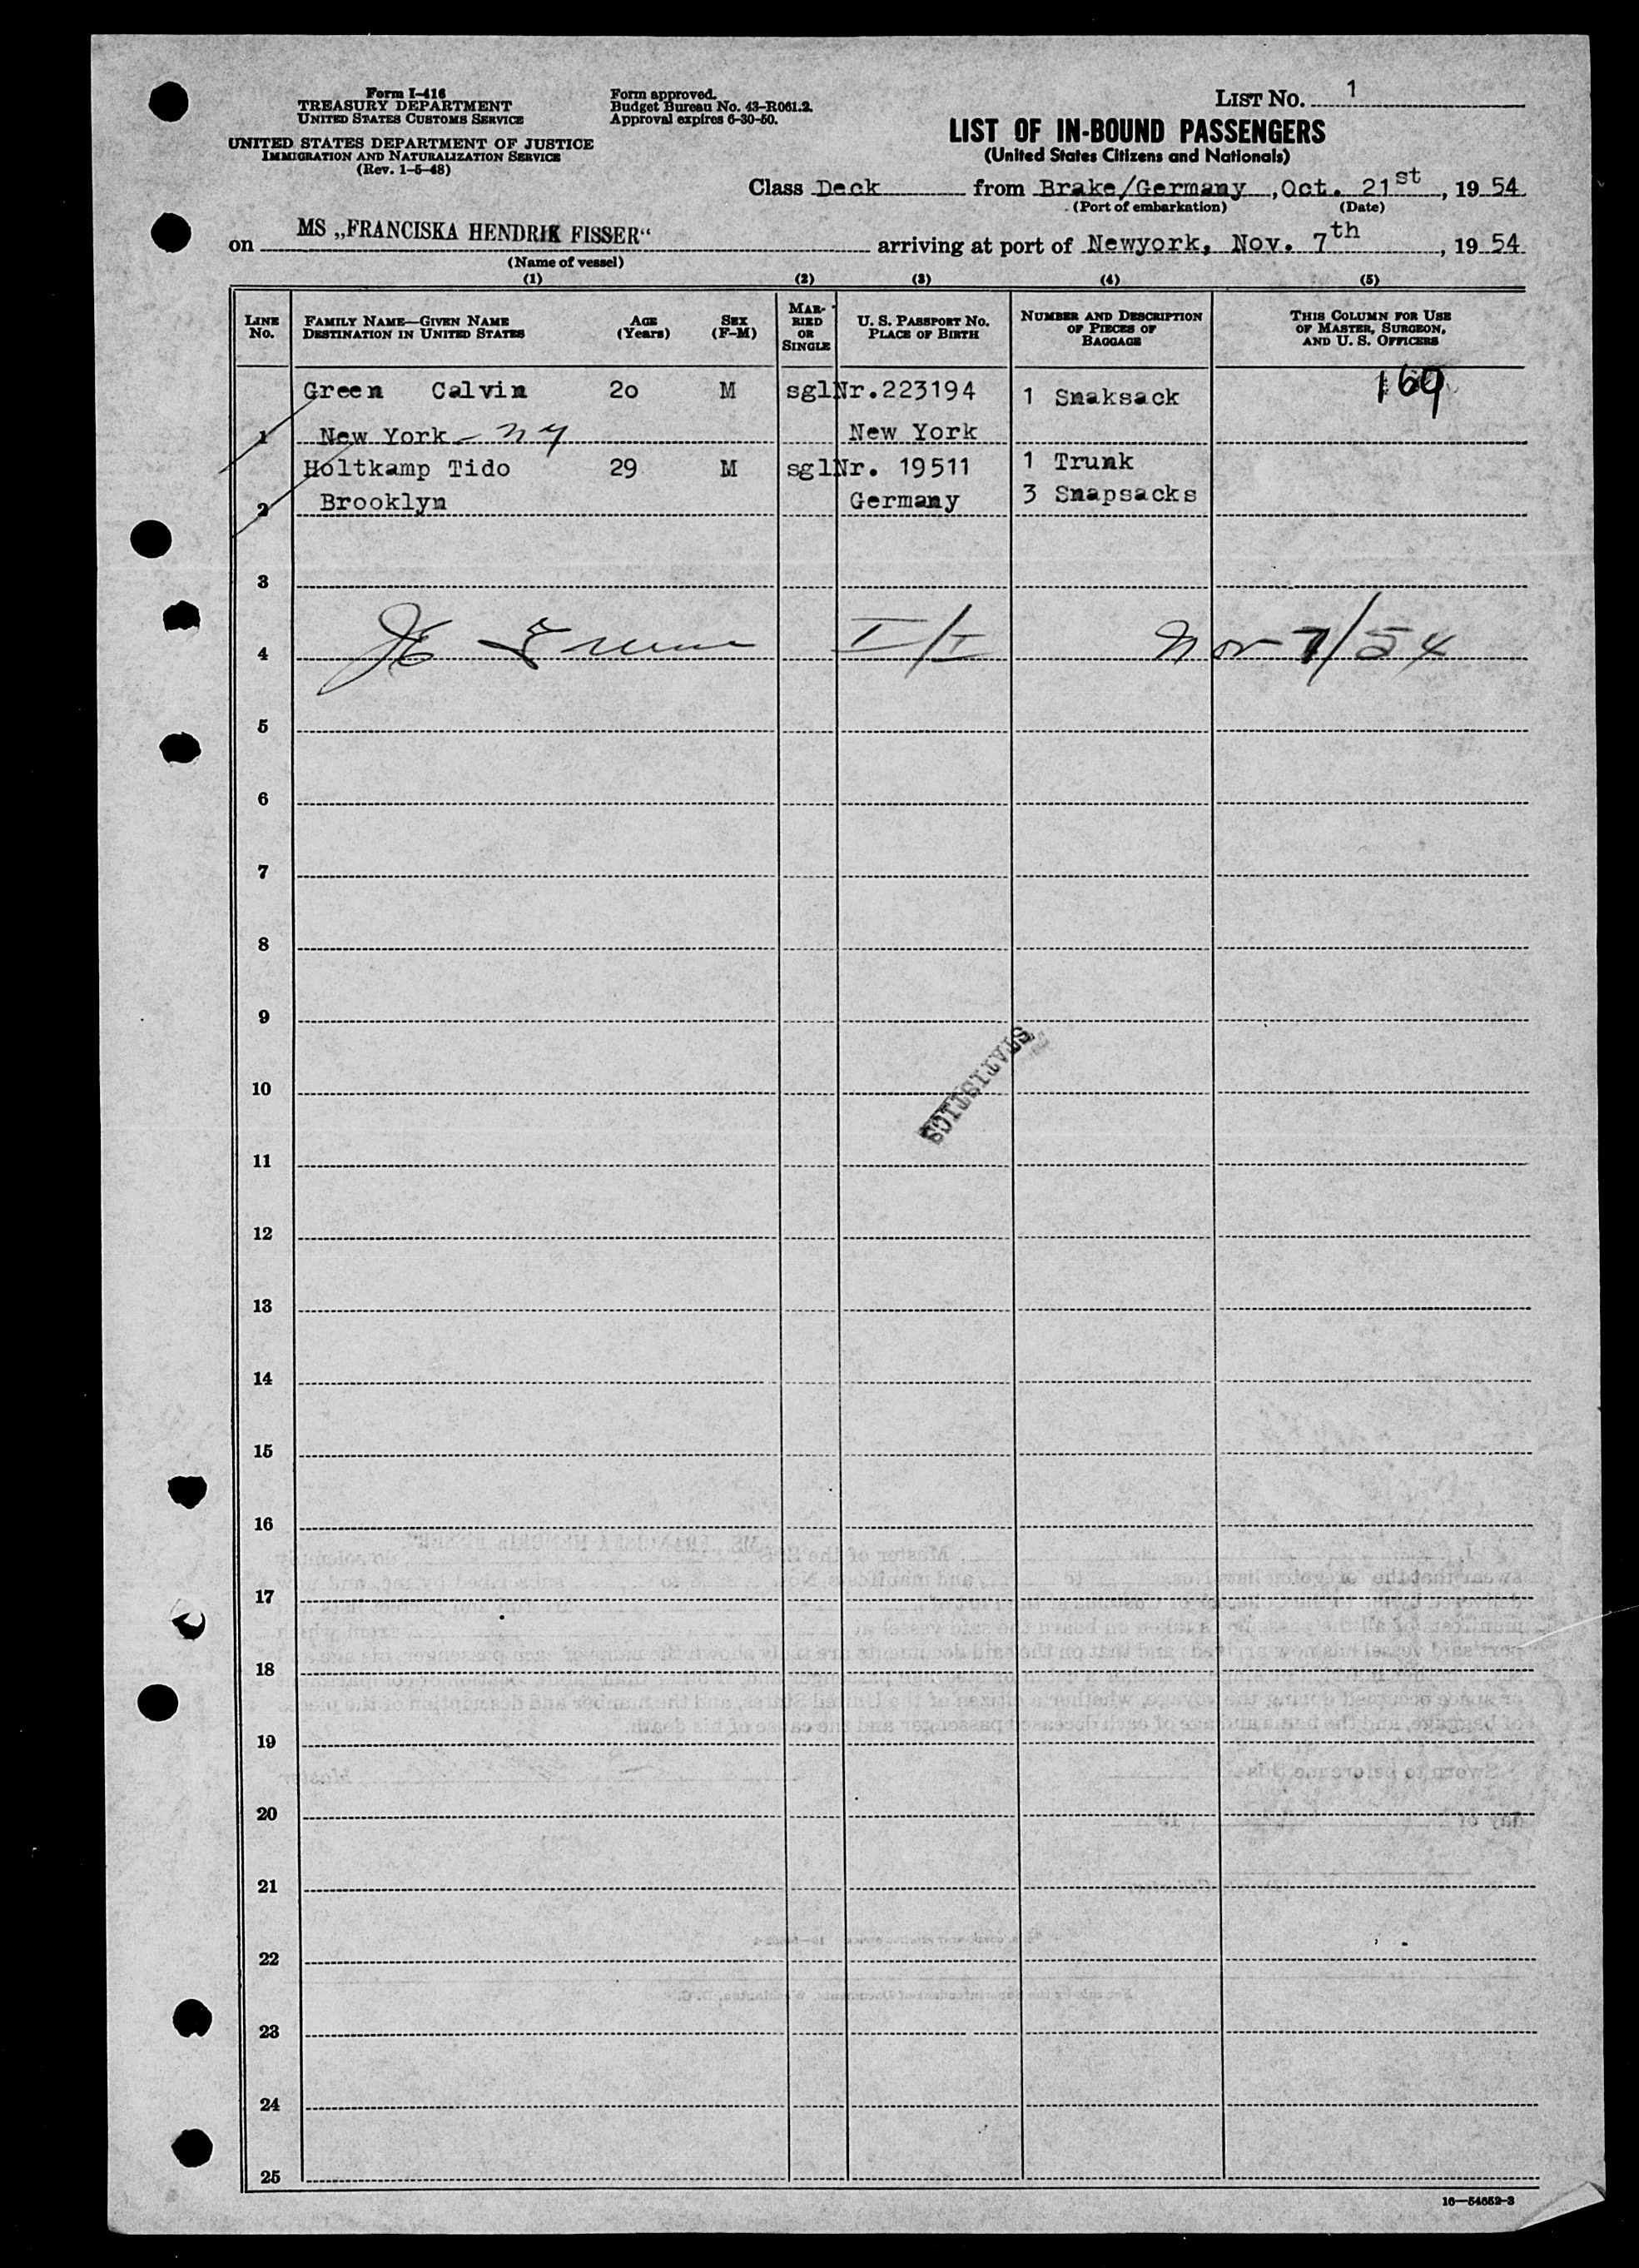 Form I-416
TREASURY DEPARTMENT
UNITED STATES CUSTOMS SERVICE
UNITED STATES DEPARTMENT OF JUSTICE
IMMIGRATION AND NATURALIZATION SERVICE
(Rev. 1-5-48)
Form approved.
Budget Bureau No. 43-R061.2.
Approval expires 6-30-50.
LIST No. 1
LIST OF IN-BOUND PASSENGERS
(United States Citizens and Nationals)
Class Deck from Brake/Germany, Oct. 21st, 19 54
(Port of embarkation) (Date)
on MS „FRANCISKA HENDRIK FISSER“ arriving at port of Newyork, Nov. 7th, 19 54
(Name of vessel)
(1) (2) (3) (4) (5)
LINE No. FAMILY NAME—GIVEN NAME DESTINATION IN UNITED STATES AGE (Years) SEX (F-M) MARRIED OR SINGLE U. S. PASSPORT No. PLACE OF BIRTH NUMBER AND DESCRIPTION OF PIECES OF BAGGAGE THIS COLUMN FOR USE OF MASTER, SURGEON, AND U. S. OFFICERS
Green Calvin 2o M sgl Nr.223194 1 Snaksack 169
1 New York - NY New York
Holtkamp Tido 29 M sgl Nr. 19511 1 Trunk
2 Brooklyn Germany 3 Snapsacks
3
4 I/I Nov 7/54
5
6
7
8
9
STATISTICS
10
11
12
13
14
15
16
17
18
19
20
21
22
23
24
25
16—54652-3